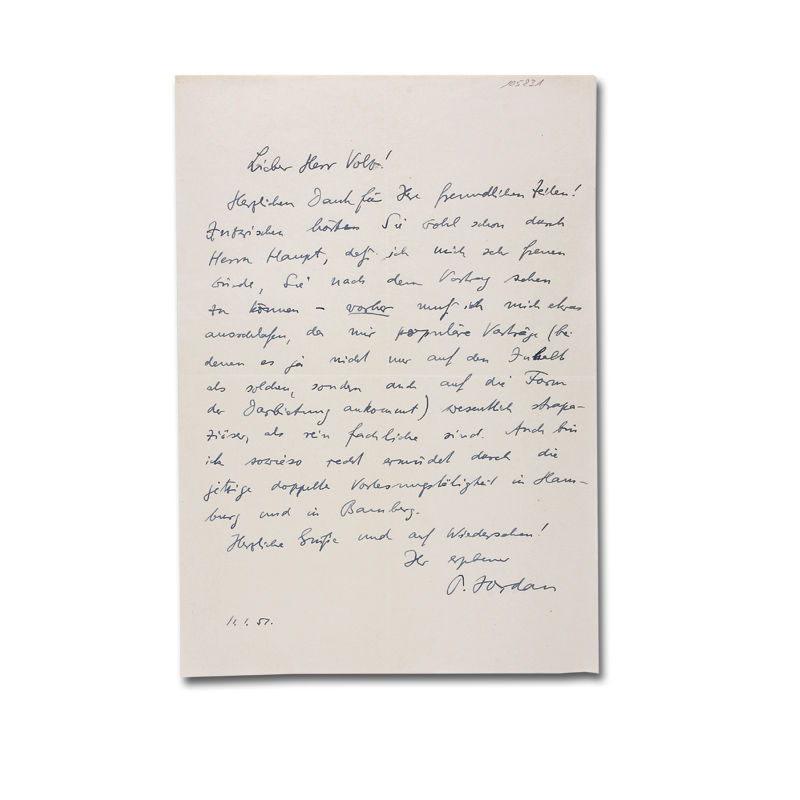 105831
Lieber Herr Volk!
Herzlichen Dank für Ihre freundlichen Zeilen!
Inzwischen hörten Sie wohl schon durch
Herrn Haupt, daß ich mich sehr freuen
würde, Sie nach dem Vortrag sehen
zu können – vorher muß ich mich etwas
ausschlafen, da mir populäre Vorträge (bei
denen es ja nicht nur auf den Inhalt
als solchen, sondern auch auf die Form
der Darbietung ankommt) wesentlich strapa-
ziöser, als rein fachliche sind. Auch bin
ich sowieso recht ermüdet durch die
jetzige doppelte Vorlesungstätigkeit in Ham-
burg und in Bamberg.
Herzliche Grüße und auf Wiedersehen!
Ihr ergebener
P. Jordan